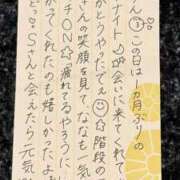 ん☺この日は1ヵ月ぶりの
ナイト🌙会いに来てくれて
がとうやだでぇ☺階段の
さんの笑顔を見て、ななも一気
チON☆「疲れてるやろうに
がてくれたのも嬉しかったよ
ど。Sさんと会えたら元気